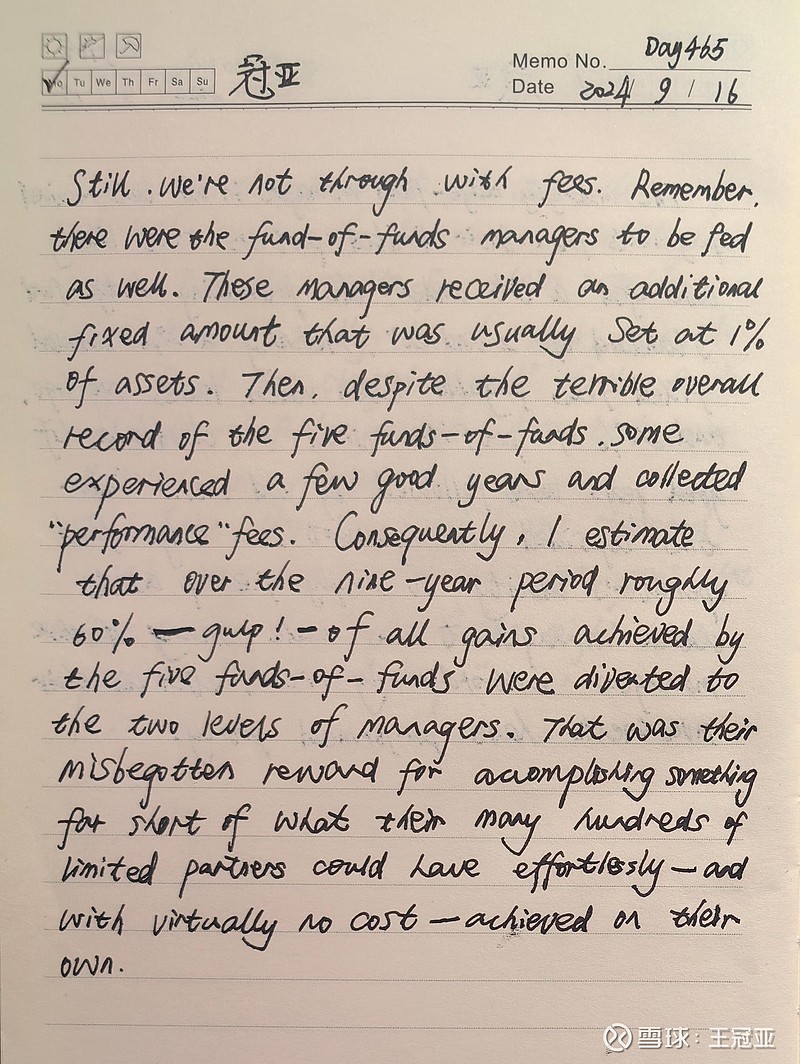 冠亚
Memo No. Day465
Mo Tu We Th Fr Sa Su
Date 2024 / 9 / 16
Still, we're not through with fees. Remember,
there were the fund-of-funds managers to be fed
as well. These managers received an additional
fixed amount that was usually set at 1%
of assets. Then, despite the terrible overall
record of the five funds-of-funds, some
experienced a few good years and collected
"performance" fees. Consequently, I estimate
that over the nine-year period roughly
60% — gulp! — of all gains achieved by
the five funds-of-funds were diverted to
the two levels of managers. That was their
misbegotten reward for accomplishing something
far short of what their many hundreds of
limited partners could have effortlessly — and
with virtually no cost — achieved on their
own.
雪球：王冠亚